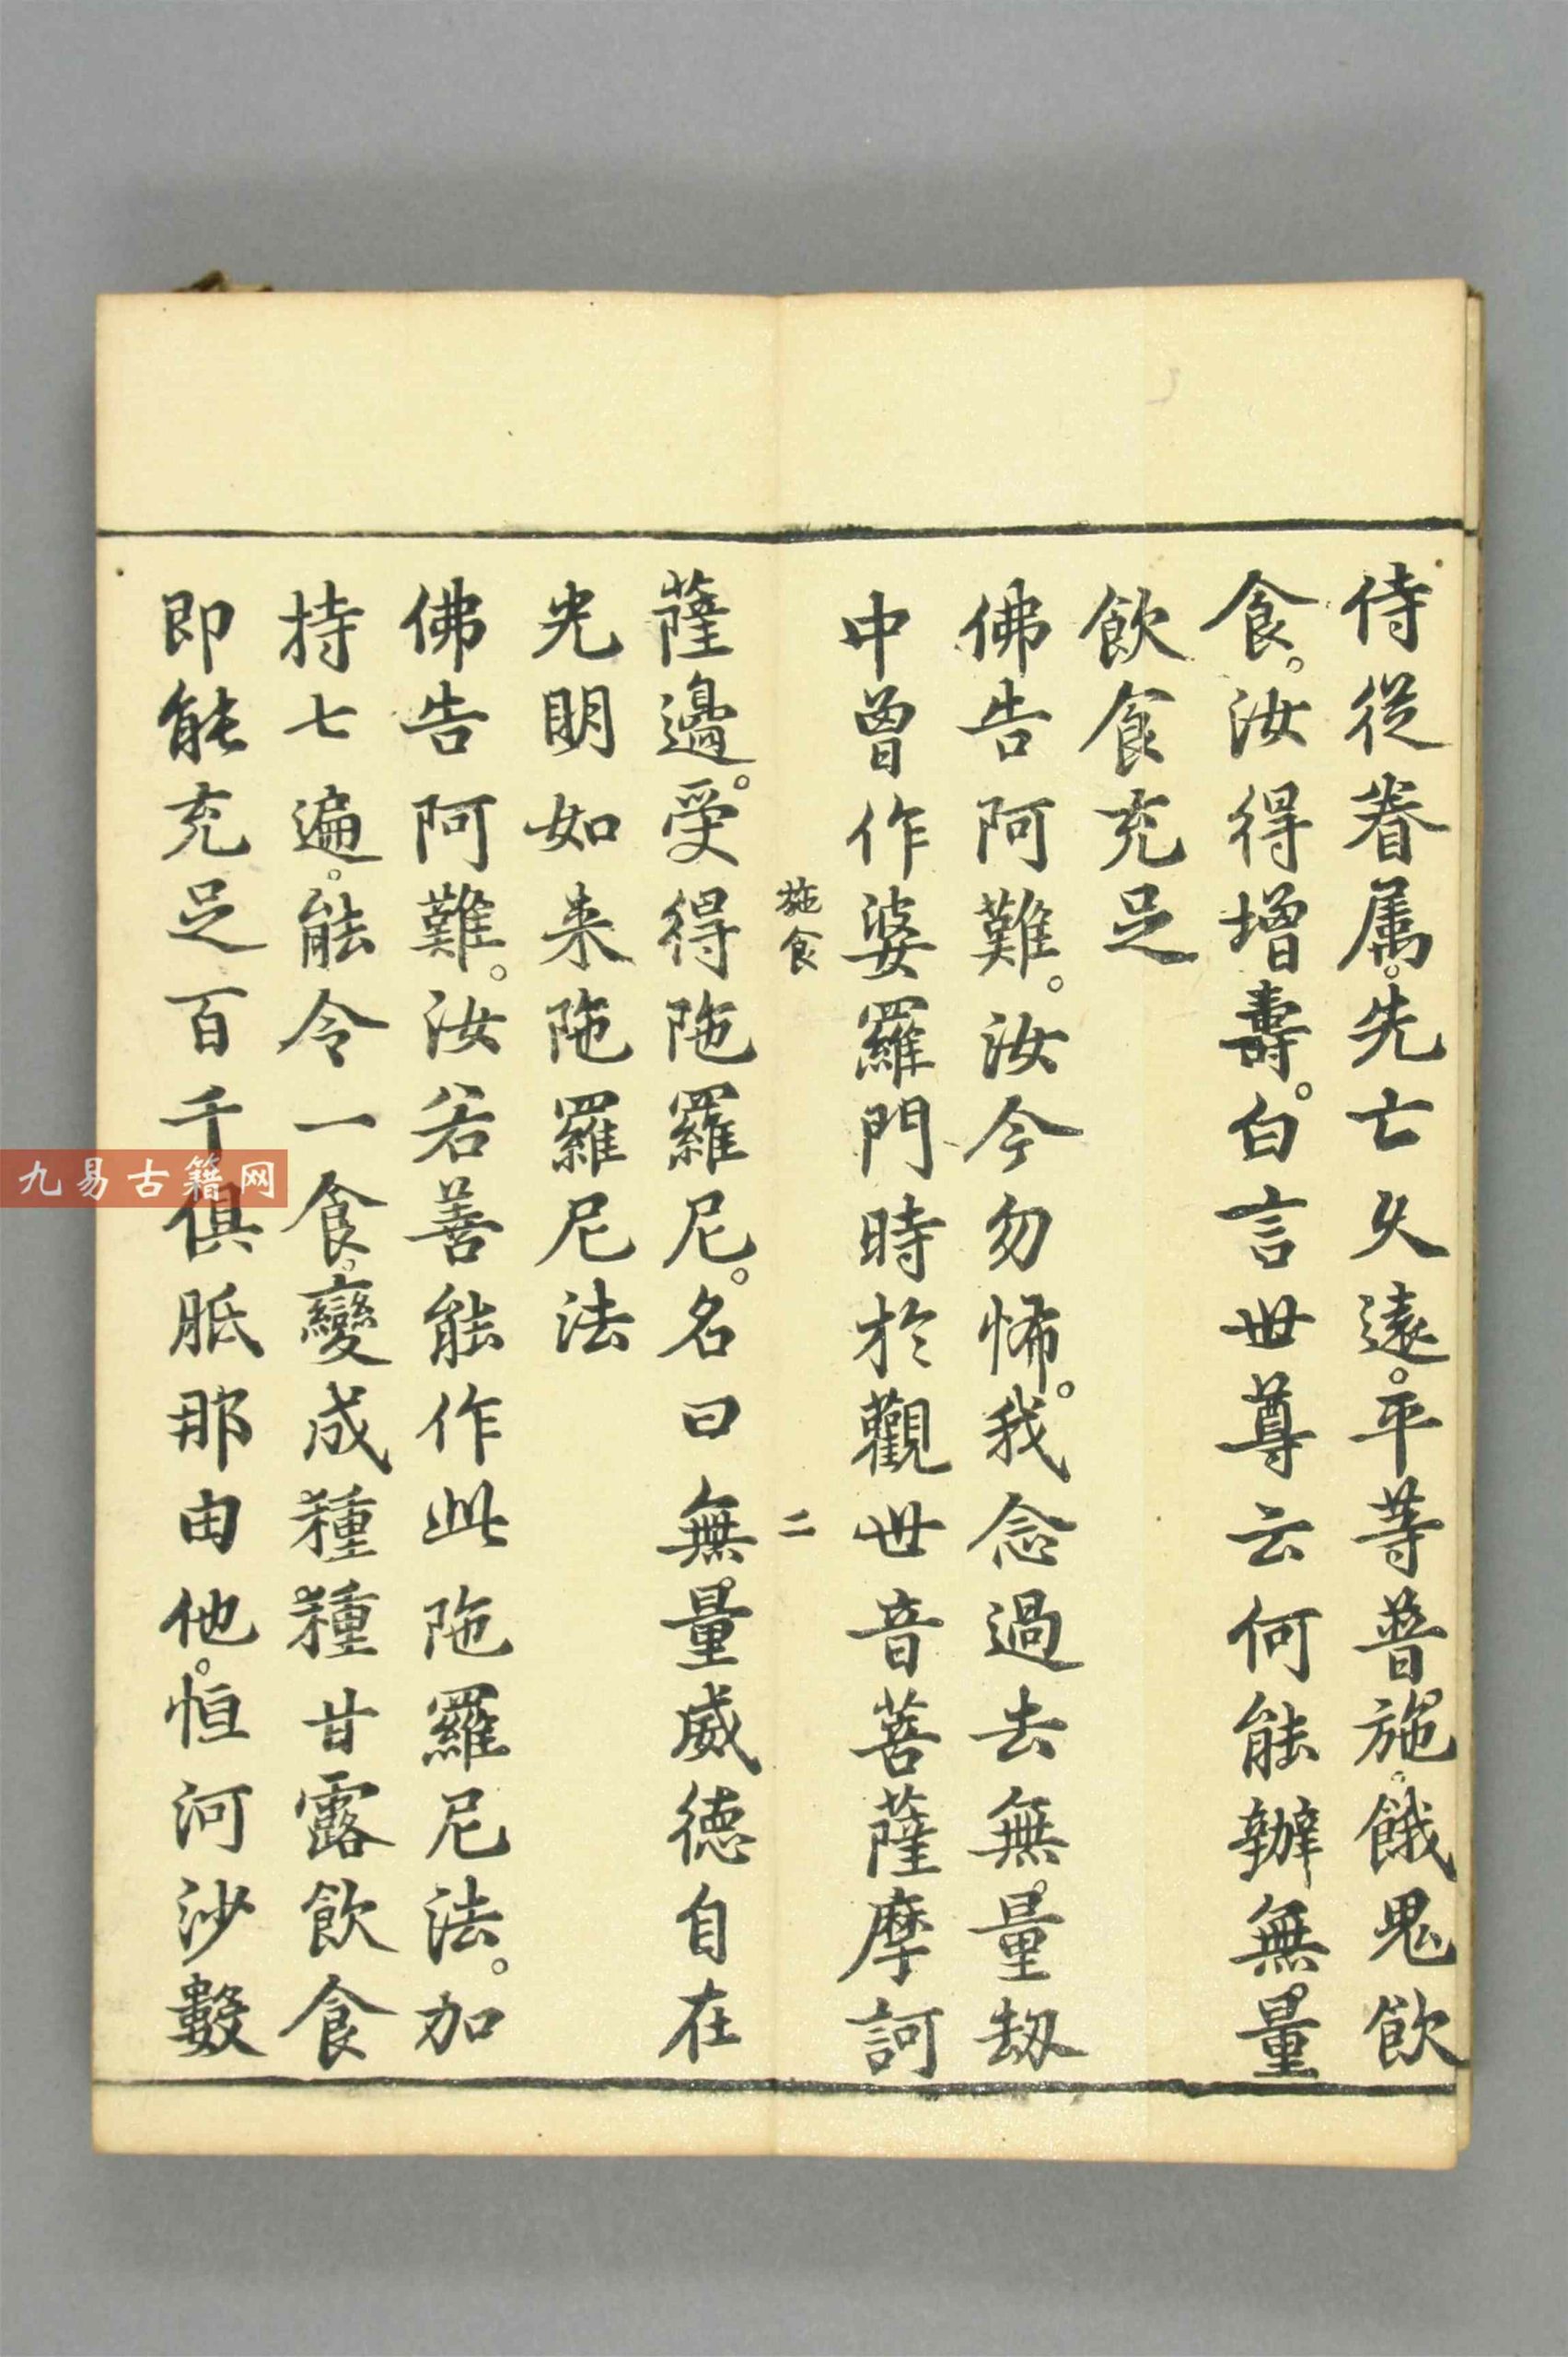 侍從眷属。先亡久遠。平等普施。餓鬼飲
食。汝得增壽。白言世尊云何能辦無量
飲食充足
佛告阿難。汝今勿怖。我念過去無量劫
中曾作婆羅門時於觀世音菩薩摩訶
施食 二
薩邊。受得陁羅尼。名曰無量威德自在
光明如来陁羅尼法
佛告阿難。汝若善能作此陁羅尼法。加
持七遍。能令一食。變成種種甘露飲食
即能充足百千俱胝那由他。恒河沙數
九易古籍网